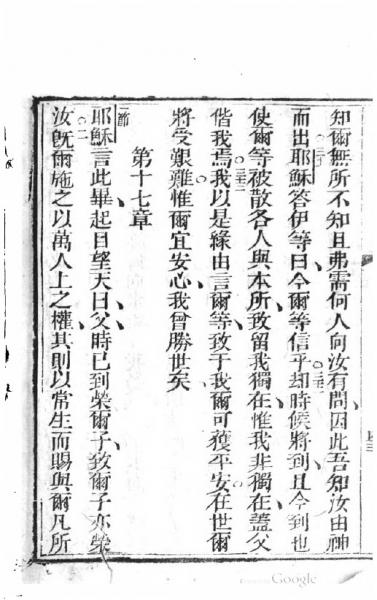 知爾無所不知且弗需何人向汝有問因此吾知汝由神
而出耶穌答伊等曰今爾等信乎却時候將到且今到也
使爾等被散各人與本所致留我獨在惟我非獨在蓋父
偕我焉我以是緣由言爾等致于我爾可獲平安在世爾
將受艱難惟爾宜安心我曾勝世矣
第十七章
耶穌言此畢起目望天曰父時已到榮爾子致爾子亦榮
汝旣爾施之以萬人上之權其則以常生而賜與爾凡所
Google